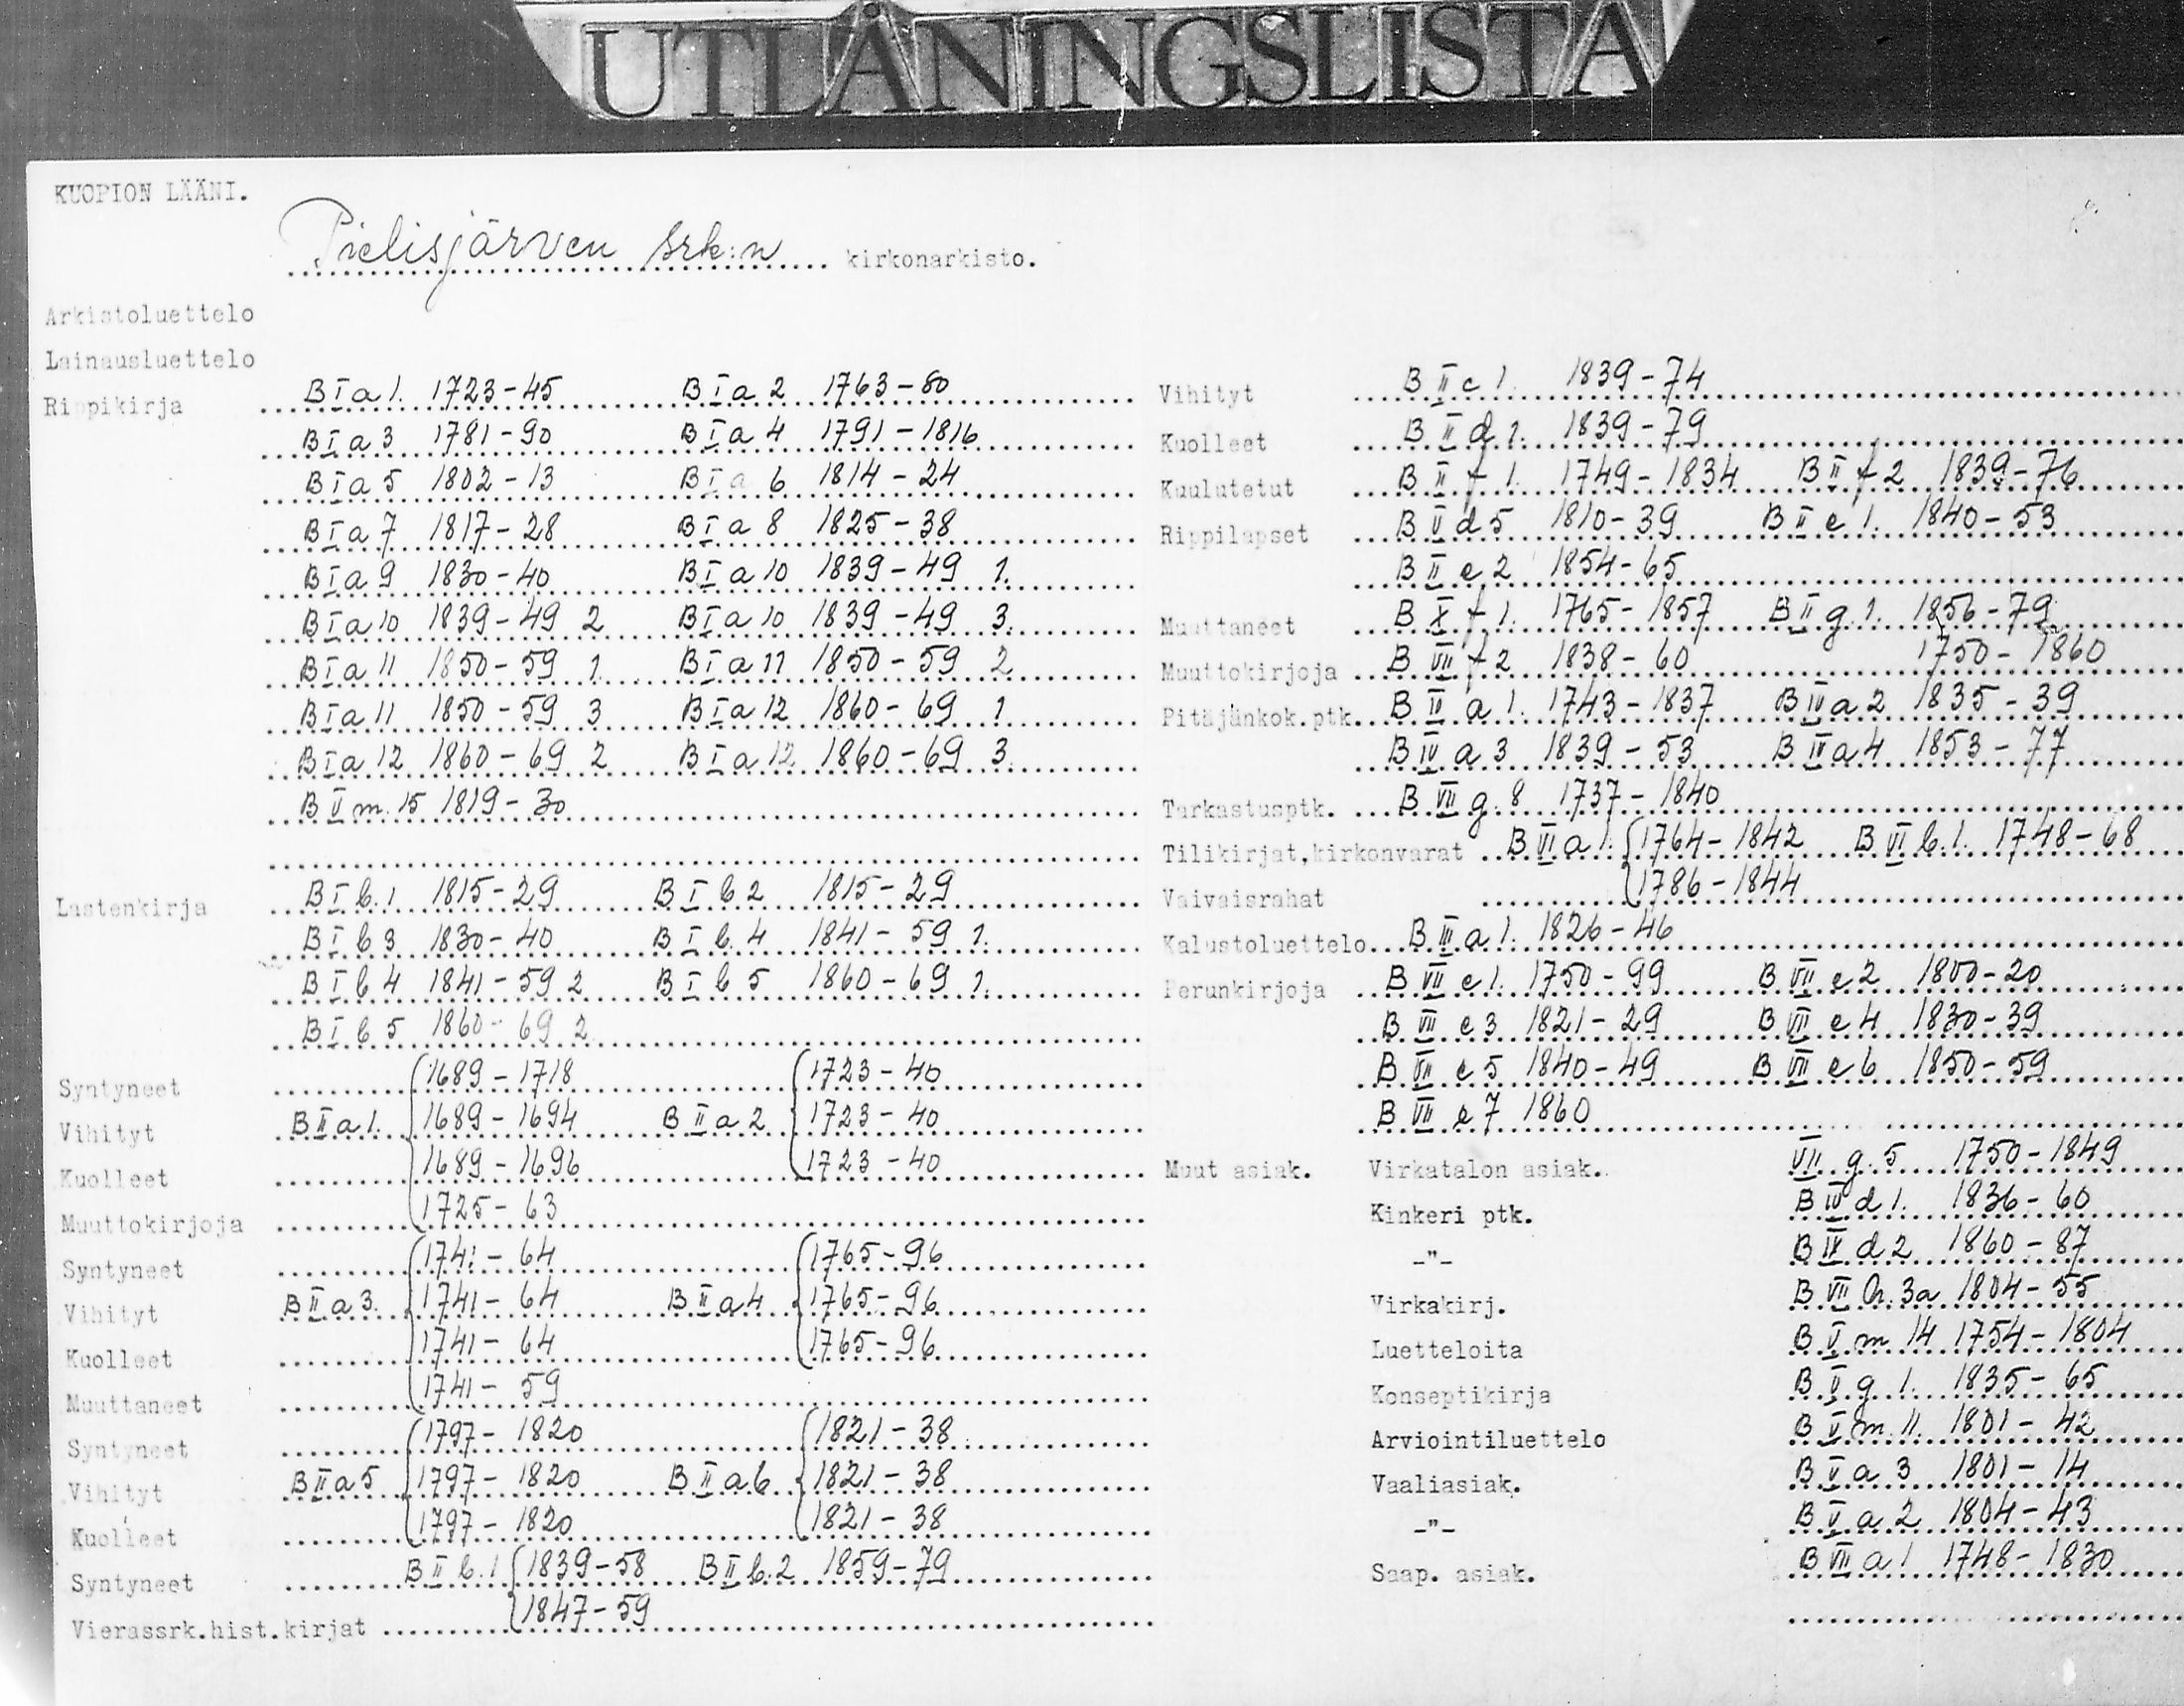 UTLÅNINGSLISTA
KUOPION LÄÄNI.
Pielisjärven srk:n kirkonarkisto.
Arkistoluettelo
Lainausluettelo
Rippikirja B I a 1. 1723-45 B I a 2 1763-80
B I a 3 1781-90 B I a 4 1791-1816
B I a 5 1802-13 B I a 6 1814-24
B I a 7 1817-28 B I a 8 1825-38
B I a 9 1830-40 B I a 10 1839-49 1.
B I a 10 1839-49 2 B I a 10 1839-49 3.
B I a 11 1850-59 1. B I a 11 1850-59 2
B I a 11 1850-59 3 B I a 12 1860-69 1
B I a 12 1860-69 2 B I a 12 1860-69 3.
B V m. 15 1819-30
Lastenkirja B I b. 1 1815-29 B I b 2 1815-29
B I b 3 1830-40 B I b. 4 1841-59 1.
B I b 4 1841-59 2 B I b 5 1860-69 1.
B I b 5 1860-69 2
Syntyneet 1689-1718 1723-40
Vihityt B II a 1. 1689-1694 B II a 2 1723-40
Kuolleet 1689-1696 1723-40
Muuttokirjoja 1725-63
Syntyneet 1741-64 1765-96
Vihityt B II a 3. 1741-64 B II a 4 1765-96
Kuolleet 1741-64 1765-96
Muuttaneet 1741-59
Syntyneet 1797-1820 1821-38
Vihityt B II a 5 1797-1820 B II a 6 1821-38
Kuolleet 1797-1820 1821-38
Syntyneet B II b. 1 1839-58 B II b. 2 1859-79
1847-59
Vierassrk.hist.kirjat
Vihityt B II c 1. 1839-74
Kuolleet B II d 1. 1839-79
Kuulutetut B II f 1. 1749-1834 B II f 2 1839-76
Rippilapset B V d 5 1810-39 B II e 1. 1840-53
B II e 2 1854-65
Muuttaneet B X f 1. 1765-1857 B II g. 1. 1856-79
Muuttokirjoja B VII f 2 1838-60 1750-1860
Pitäjänkok.ptk. B IV a 1. 1743-1837 B IV a 2 1835-39
B IV a 3 1839-53 B IV a 4 1853-77
Tarkastusptk. B VII g. 8 1737-1840
Tilikirjat,kirkonvarat B VI a 1. 1764-1842 B VI b. 1. 1748-68
Vaivaisrahat 1786-1844
Kalustoluettelo B III a 1. 1826-46
Perunkirjoja B VII e 1. 1750-99 B VII e 2 1800-20
B VII e 3 1821-29 B VII e 4 1830-39
B VII e 5 1840-49 B VII e 6 1850-59
B VII e 7 1860
Muut asiak. Virkatalon asiak. VII g. 5 1750-1849
Kinkeri ptk. B IV d 1. 1836-60
-"- B IV d 2 1860-87
Virkakirj. B VII h. 3a 1804-55
Luetteloita B V m 14 1754-1804
Konseptikirja B V g 1. 1835-65
Arviointiluettelo B V m. 11. 1801-42
Vaaliasiak. B V a 3 1801-14
-"- B V a 2 1804-43
Saap. asiak. B VII a 1 1748-1830